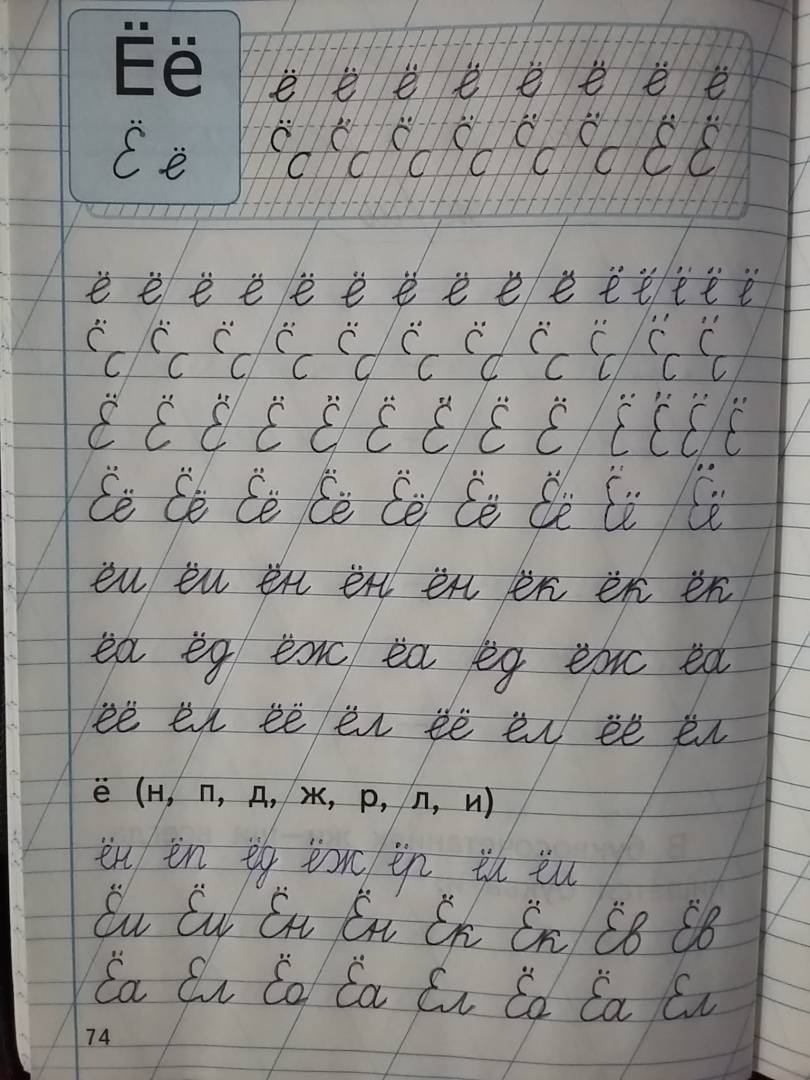 Ёё
Ё ё
ё ё ё ё ё ё ё ё
с̈с с̈с с̈с с̈с с̈с с̈с Ё Ё
ё ё ё ё ё ё ё ё ё ё ё ё ё ё ё
с̈с с̈с с̈с с̈с с̈с с̈с с̈с с̈с с̈с с̈с с̈с
Ё Ё Ё Ё Ё Ё Ё Ё Ё Ё Ё Ё Ё
Ёё Ёё Ёё Ёё Ёё Ёё Ёё Ёё Ёё
ёи ёи ён ён ён ёк ёк ёк
ёа ёд ёж ёа ёд ёж ёа
ёё ёл ёё ёл ёё ёл ёё ёл
ё (н, п, д, ж, р, л, и)
ён ёп ёд ёж ёр ёл ёи
Ёи Ёи Ён Ён Ёк Ёк Ёв Ёв
Ёа Ел Ёо Ёа Ел Ёо Ёа Ел
74